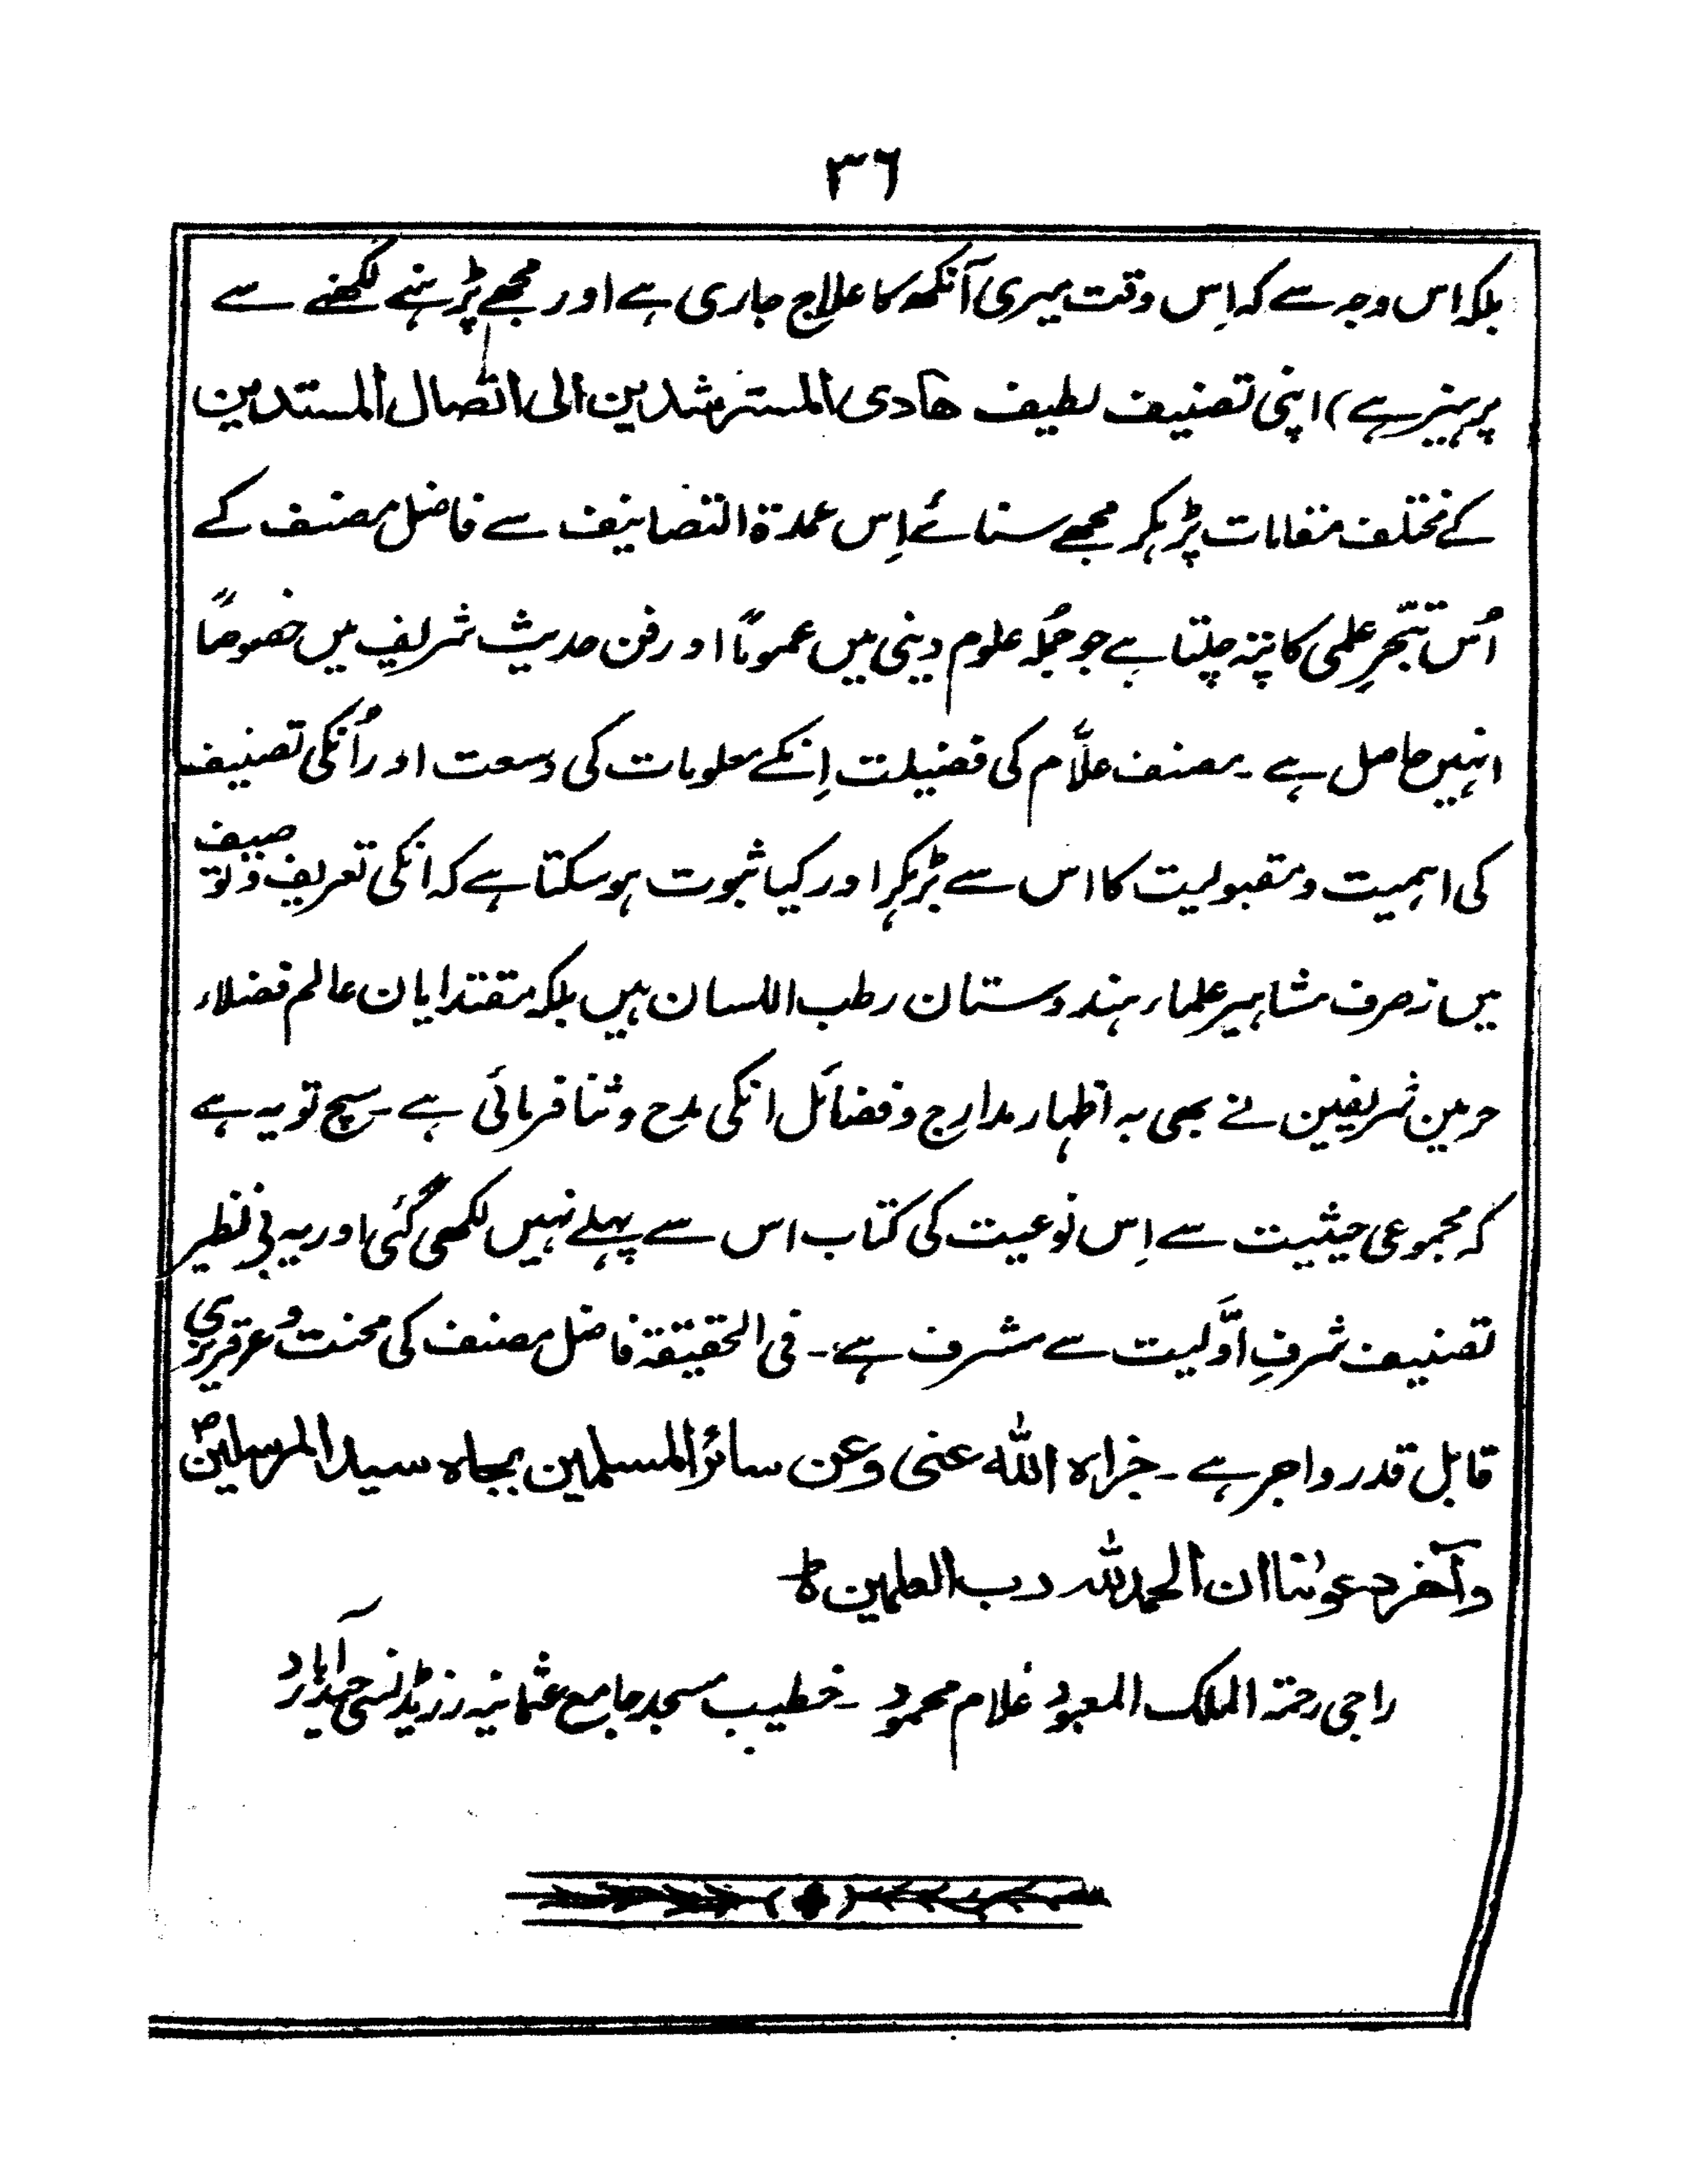 ٣٦
بلکہ اس وجہ سے کہ اِس وقت میری آنکھ کا علاج جاری ہے اور مجھے پڑہنے لکھنے سے
پرہیز ہے) اپنی تصنیف لطیف ھادی المسترشدین الی اتصال المسندین
کے مختلف مقامات پڑہکر مجھے سنائے اِس عمدۃ التصانیف سے فاضل مصنف کے
اُس تبحّرِ علمی کا پتہ چلتا ہے جو جملہ علوم دینی میں عموماً اور فن حدیث شریف میں خصوصاً
انہیں حاصل ہے ۔ مصنف علّام کی فضیلت اِنکے معلومات کی وسعت اور اُنکی تصنیف
کی اہمیت و مقبولیت کا اس سے بڑہکر اور کیا ثبوت ہوسکتا ہے کہ انکی تعریف و توصیف
میں نہ صرف مشاہیر علماء ہندوستان رطب اللسان ہیں بلکہ مقتدایان عالم فضلاء
حرمین شریفین نے بھی بہ اظہار مدارج و فضائل انکی مدح و ثنا فرمائی ہے ۔ سچ تو یہ ہے
کہ مجموعی حیثیت سے اِس نوعیت کی کتاب اس سے پہلے نہیں لکھی گئی اور یہ بے نظیر
تصنیف شرفِ اوّلیت سے مشرف ہے ۔ فی الحقیقۃ فاضل مصنف کی محنت و عرقریزی
قابل قدر و اجر ہے ۔ جزاہ اللہ عنی وعن سائر المسلمین بجاہ سید المرسلینؐ
وآخر دعوٰنا ان الحمد للہ رب العلمین ط
راجی رحمۃ الملک المعبود غلام محمود ۔ خطیب مسجد جامع عثمانیہ رزیڈنسی حیدرآباد